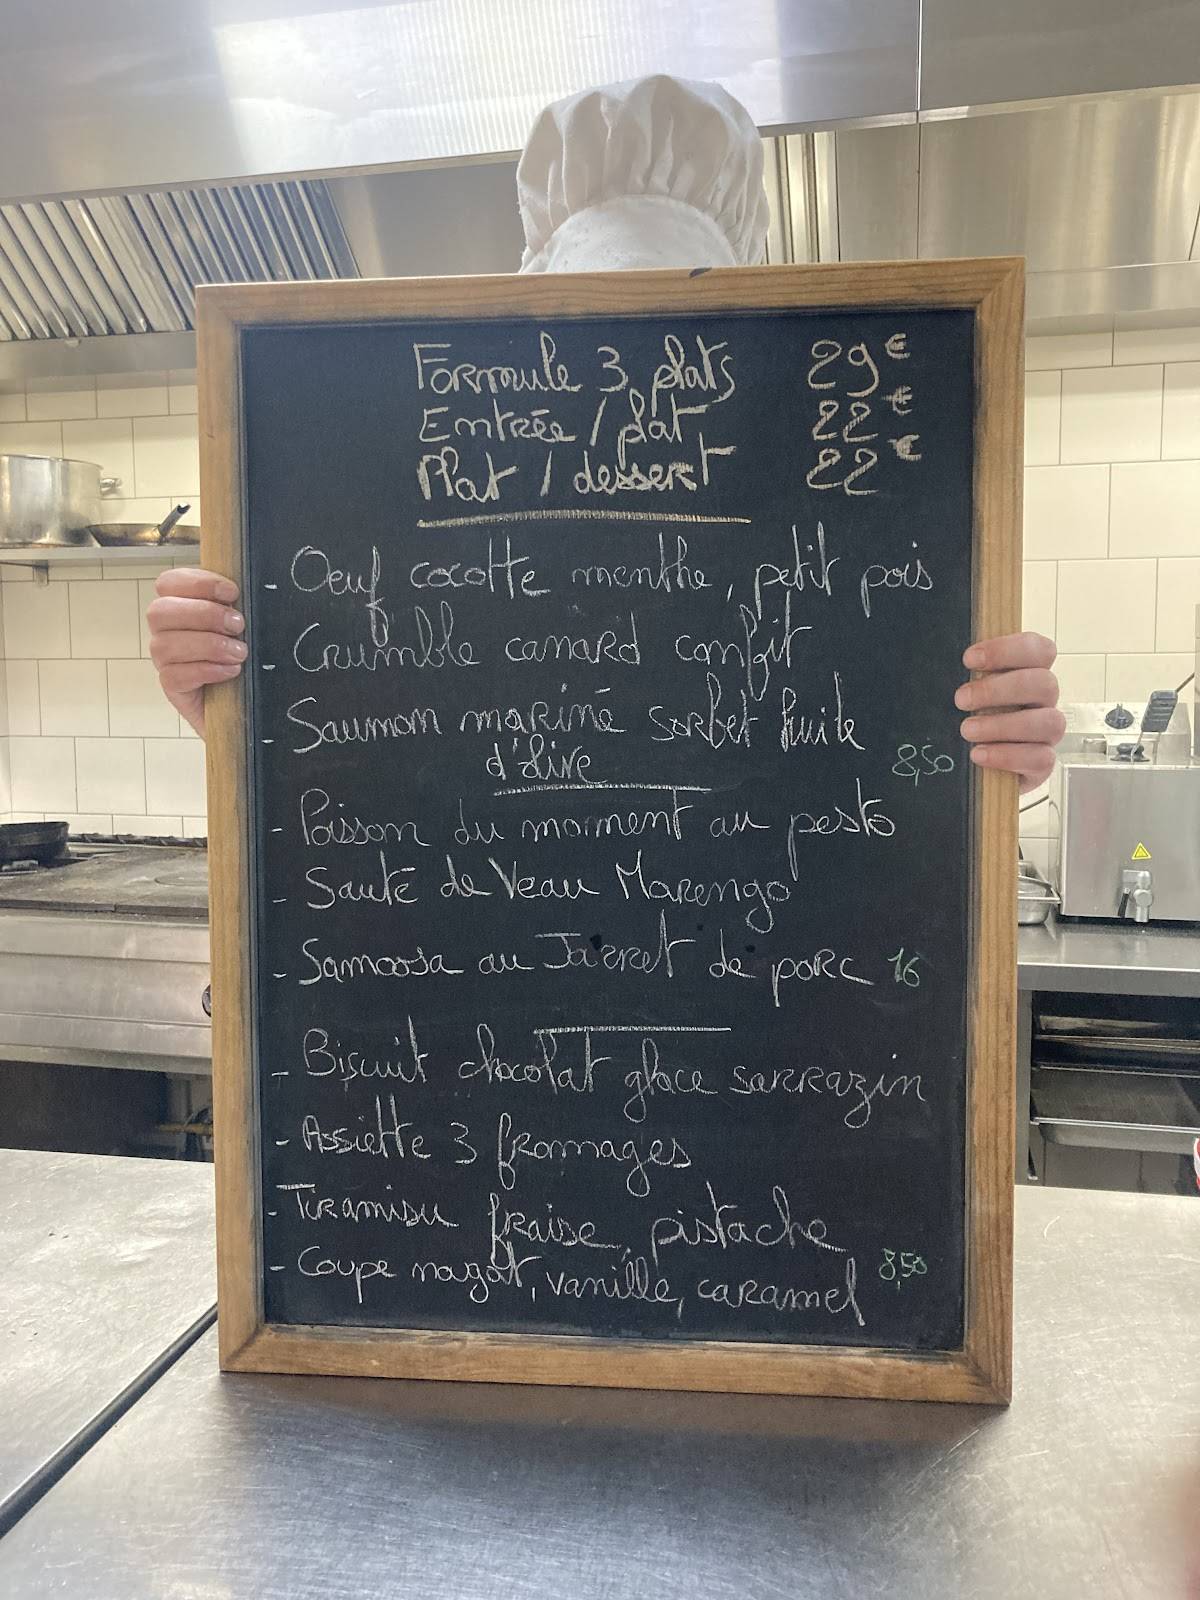 Formule 3 plats 29€
Entrée / plat 22€
Plat / dessert 22€
- Oeuf cocotte menthe, petit pois
- Crumble canard confit
- Saumon mariné sorbet huile
d'olive 8,50
- Poisson du moment au pesto
- Sauté de Veau Marengo
- Samoosa au Jarret de porc 16
- Biscuit chocolat glace sarrazin
- Assiette 3 fromages
- Tiramisu fraise, pistache
- Coupe nougat, vanille, caramel 8,50